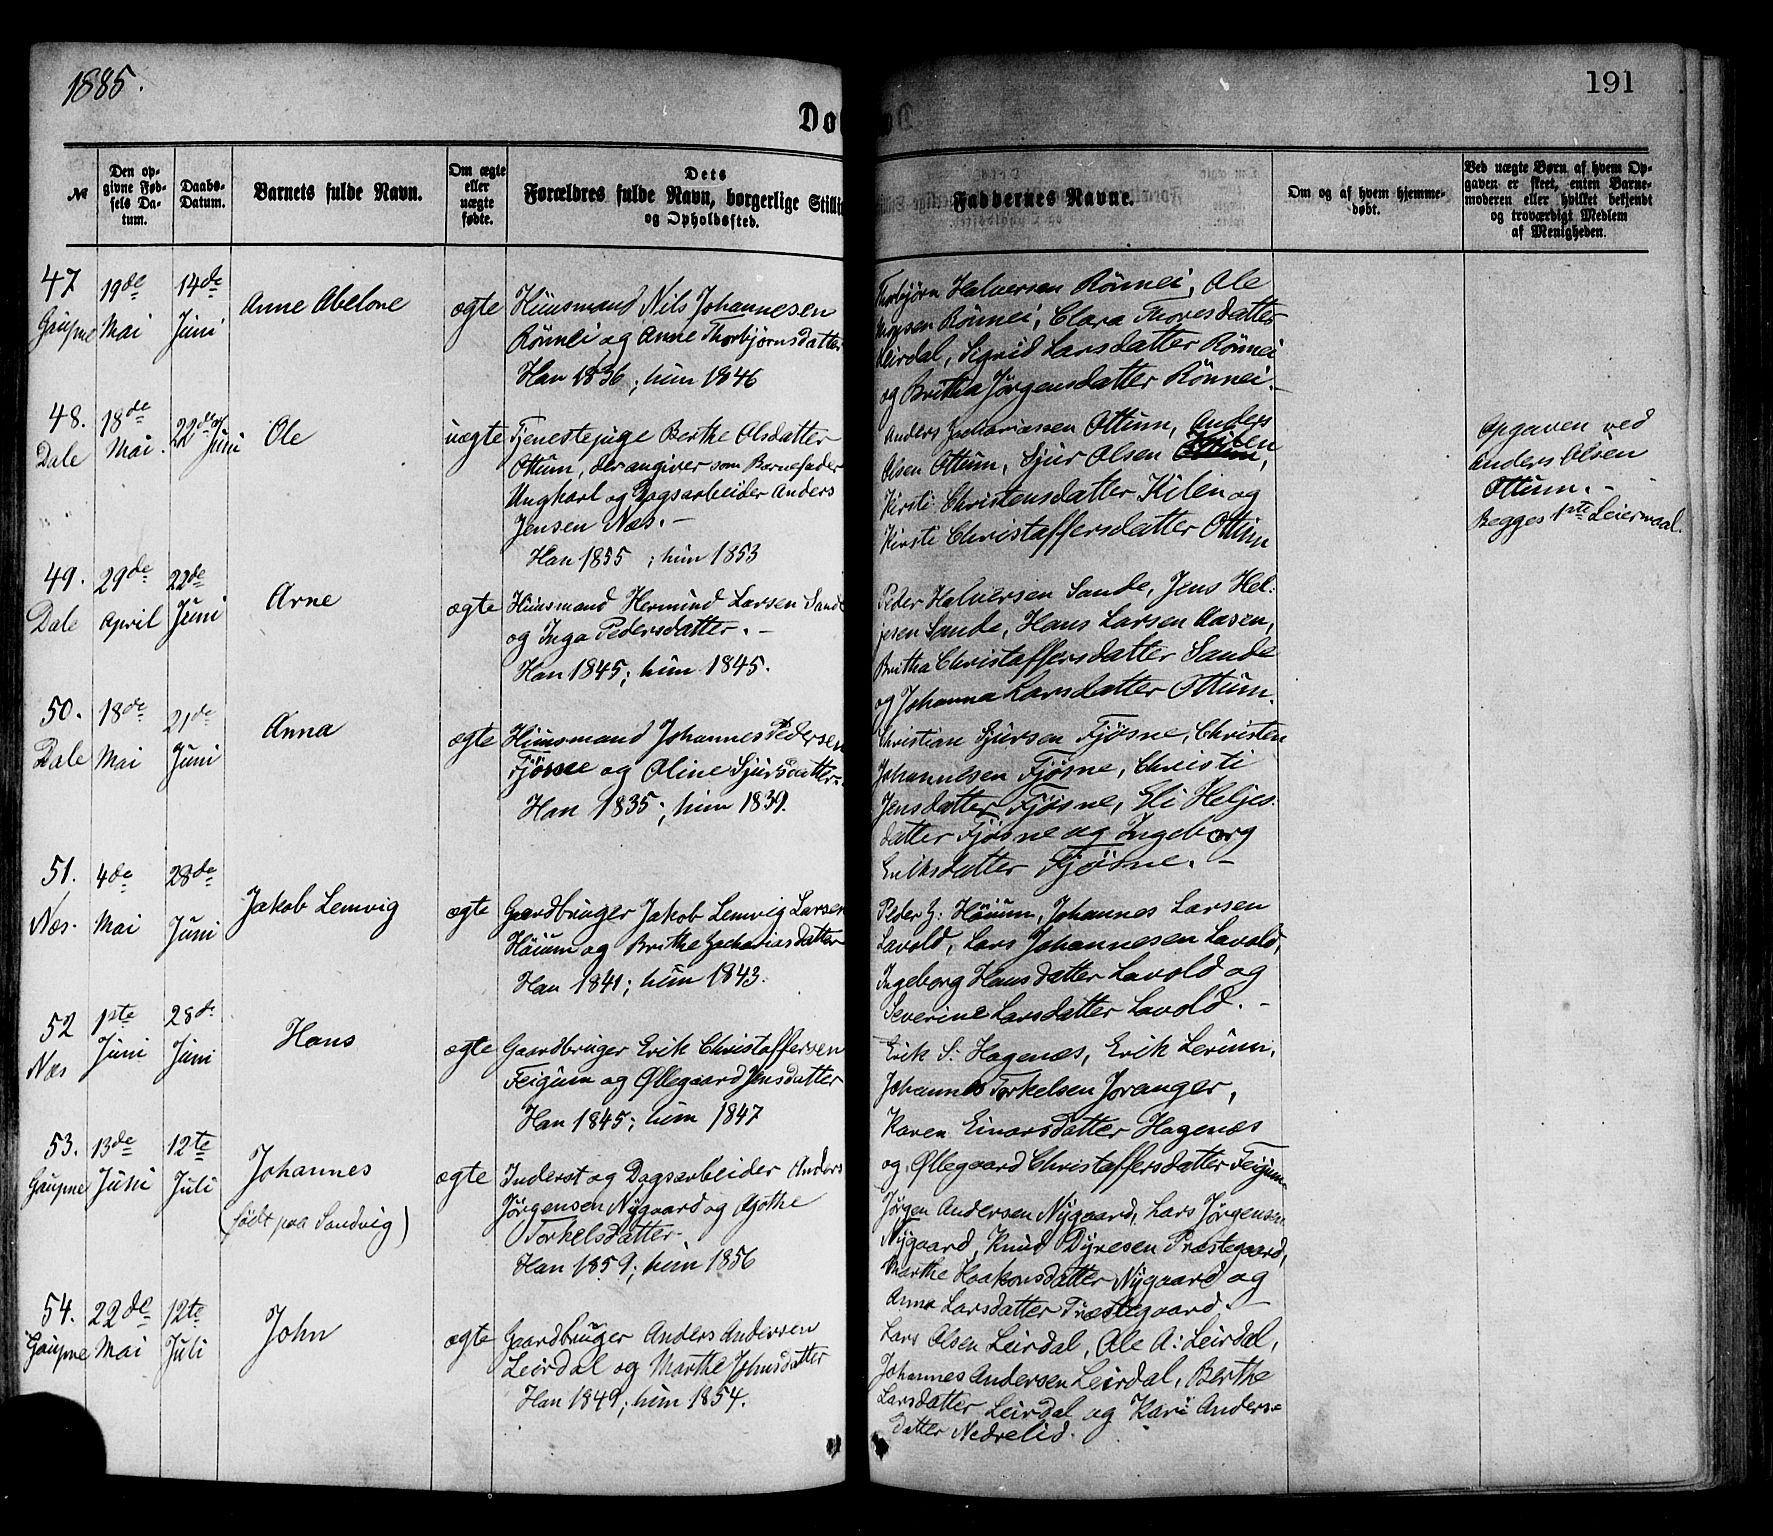 1885.
191
Døb
№
Den op-
givne Fød-
sels Da-
tum.
Daabs-
Datum.
Barnets fulde Navn.
Om ægte
eller
uægte
fødte.
Dets
Forældres fulde Navn, borgerlige Stilli
og Opholdssted.
Faddernes Navne.
Om og af hvem hjemme-
døbt.
Ved uægte Børn af hvem Op-
gaven er skeet, enten Barne-
moderen eller hvilket bekjendt
og troværdigt Medlem
af Menigheden.
47
Gaupne
19de
Mai
14de
Juni
Anne Abelone
ægte
Huusmand Nils Johannesen
Rönnei og Anne Thorbjørnsdatter
Han 1836; hun 1846
Thorbjörn Halversen Rönnei, Ole
Mogsen Rönnei, Clara Thoresdatter
Leirdal, Sigrid Larsdatter Rönnei
og Britha Jörgensdatter Rönnei.
48.
Dale
18de
Mai.
22de
Juni
Ole
uægte
Tjenestepige Berthe Olsdatter
Ottum, der angiver som Barnefader
Ungkarl og Dagsarbeider Anders
Jensen Næs.-
Han 1855; hun 1853
Anders Zachariassen Ottum, Anders
Olsen Ottum, Sjur Olsen Kilen,
Kirsti Christensdatter Kilen og
Kirsti Christaffersdatter Ottum
Opgaven ved
Anders Olsen
Ottum.-
Begges 1ste Leiermaal.
49.
Dale
29de
April
22de
Juni
Arne
ægte
Huusmand Hermund Larsen Sande
og Inga Pedersdatter.-
Han 1845; hun 1845.
Peder Halversen Sande, Jens Hel-
jesen Sande, Hans Larsen Aasen,
Britha Christaffersdatter Sande
og Johanna Larsdatter Ottum.
50.
Dale
18de
Mai
21de
Juni
Anna
ægte
Huusmand Johannes Pedersen
Fjøsne og Oline Sjursdatter.
Han 1835; hun 1839.
Christian Sjursen Fjøsne, Christen
Johannesen Fjøsne, Christi
Jensdatter Fjøsne, Eli Heljes-
datter Fjøsne og Ingeborg
Eriksdatter Fjøsne.-
51.
Næs.
4de
Mai
28de
Juni
Jakob Lemvig
ægte
Gaardbruger Jakob Lemvig Larsen
Höium og Brithe Zachariasdatter
Han 1841; hun 1843.
Peder Z: Höium, Johannes Larsen
Lavold, Lars Johannesen Lavold,
Ingeborg Hansdatter Lavold og
Severine Larsdatter Lavold.-
52
Næs
1ste
Juni
28de
Juni
Hans
ægte
Gaardbruger Erik Christaffersen
Feigum og Øllegaard Jensdatter
Han 1845; hun 1847
Erik S: Hagenæs, Erik Lerum,
Johannes Torkelsen Joranger,
Karen Einarsdatter Hagenæs
og Øllegaard Christaffersdatter Feigum.
53.
Gaupne
13de
Juni
12te
Juli
Johannes
(født paa Sandvig)
ægte
Inderst og Dagsarbeider Anders
Jørgensen Nygaard og Agathe
Torkelsdatter
Han 1859; hun 1856
Jørgen Andersen Nygaard, Lars Jørgensen
Nygaard, Knud Dyresen Præstegaard,
Marthe Haakonsdatter Nygaard og
Anna Larsdatter Præstegaard.-
54.
Gaupne
22de
Mai
12te
Juli
John
ægte
Gaardbruger Anders Andersen
Leirdal og Marthe Johnsdatter
Han 1849; hun 1854.
Lars Olsen Leirdal, Ole A: Leirdal,
Johannes Andersen Leirdal, Berthe
Larsdatter Leirdal og Kari Anders-
datter Nedrelid.